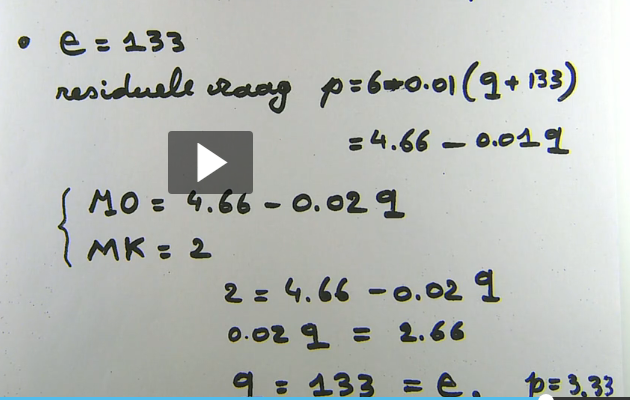 • e = 133
residuele vraag p = 6 - 0.01 (q + 133)
= 4.66 - 0.01 q
MO = 4.66 - 0.02 q
MK = 2
2 = 4.66 - 0.02 q
0.02 q = 2.66
q = 133 = e. p = 3,33